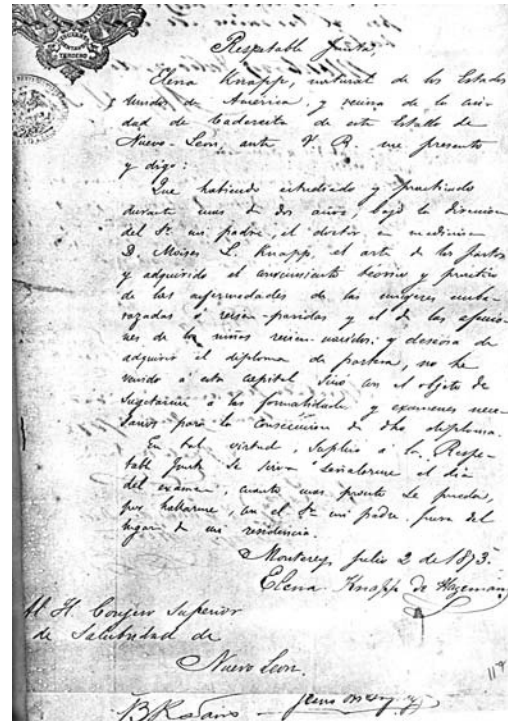 Respetable Junta;
Elena Knapp, natural de los Estados
Unidos de América, y vecina de la ciu-
dad de Cadereita de este Estado de
Nuevo-Leon, ante V. R. me presento
y digo:
Que habiendo estudiado y practicado
durante mas de dos años, bajo la direccion
del Sr. mi padre, el doctor en medicina
D. Moises L. Knapp, el arte de los partos
y adquirido el conocimiento teorico y practico
de las enfermedades de las mugeres emba-
razadas ó recien-paridas y el de las afeccio-
nes de los niños recien-nacidos; y deseosa de
adquirir el diploma de partera, no he
venido á esta capital sino con el objeto de
sugetarme á las formalidades y examenes nece-
sarios para la consecucion de dho diploma.
En tal virtud, suplico á la Respe-
table Junta se sirva señalarme el dia
del examen, cuanto mas pronto se pueda,
por hallarme, con el Sr. mi padre, fuera del
lugar de mi residencia.
Monterey, Julio 2 de 1873.
Elena Knapp de Hageman
Al H. Consejo Superior
de Salubridad de
Nuevo Leon.